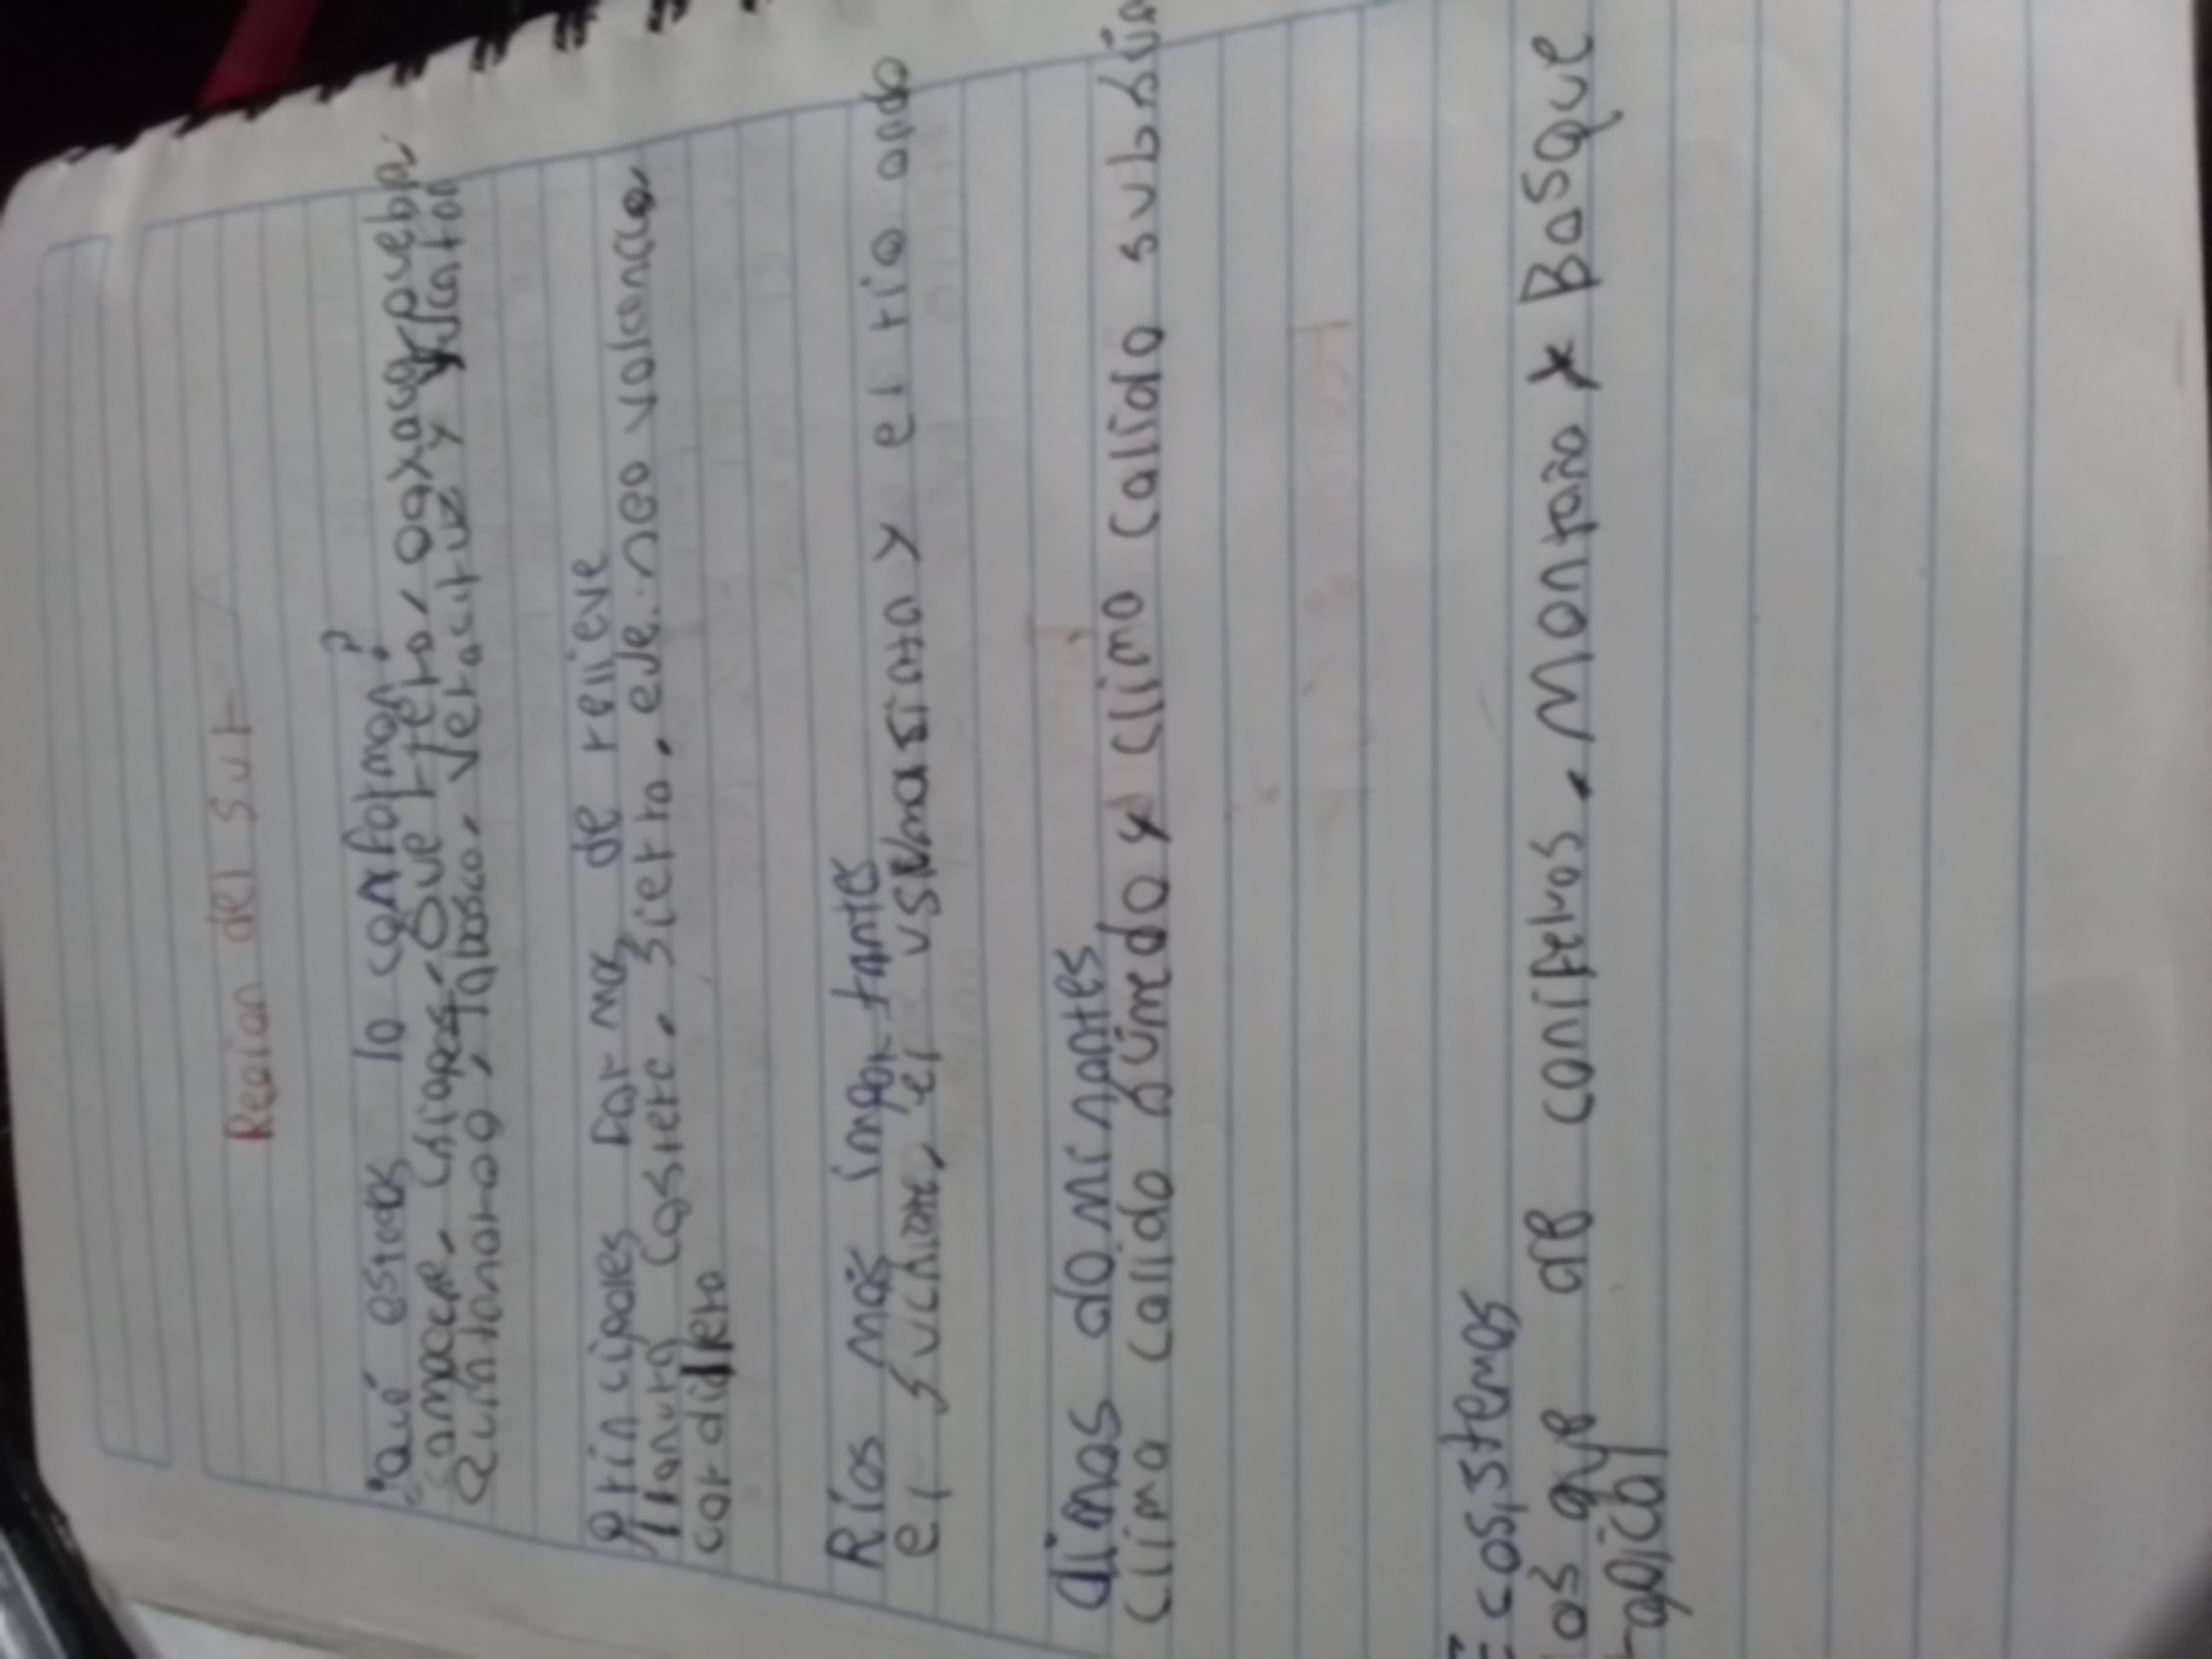 Region del sur
¿Qué estados lo conforman?
camacem, chiapas, Gue rrero, oaxaca, puebla,
Quintanaroo, tabasco, Veracruz y Yucatan
Prin cipales formas de relieve
llanura costera, sierra, eje neo volanico,
cordillera
Ríos más importantes
el suchiate, el usumasinta y el rio ondo
climas dominantes
clima calido húmedo y clima calido sub húm
Ecosistemas
os que de coniferas, Montaña y Bosque
ropical